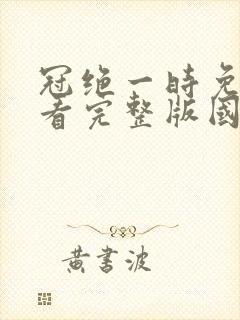 冠绝一時免
看完整版國
黄書波